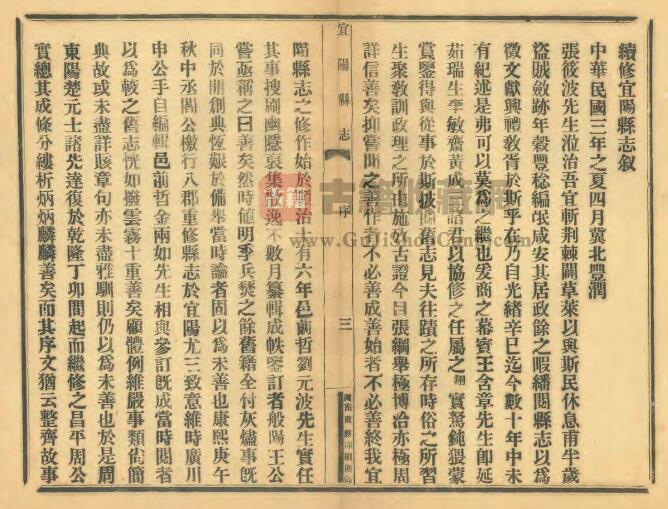 續修宜陽縣志叙
中華民國三年之夏四月冀北豐潤
張筱波先生涖治吾宜斬荆棘闢草萊以與斯民休息甫半歲
盜賊斂跡年穀豐稔編氓咸安其居政餘之暇繙閱縣志以爲
徵文獻興禮教胥於斯乎在乃自光緒辛巳迄今數十年中未
有紀述是弗可以莫爲之繼也爰商之幕賓王含章先生卽延
茹瑞生李敏齋黃成 諸君以協修之任屬之翎實駑鈍猥蒙
賞鑒得與從事於斯披 舊志見夫往蹟之所存時俗之所習
生聚敎訓政理之所由施攷古證今目張綱舉極博洽亦極周
詳信善矣抑嘗聞之善作者不必善成善始者不必善終我宜
宜陽縣志
序
三
陽縣志之修作始於順治十有六年邑前哲劉元波先生實任
其事搜剔幽隱裒集散逸不數月纂輯成帙鑒訂者般陽王公
嘗亟稱之曰善矣然時値明季兵燹之餘舊籍全付灰燼事旣
同於開創典恆艱於備舉當時論者固以爲未善也康熙庚午
秋中丞閻公檄行八郡重修縣志於宜陽尤三致意維時廣川
申公手自編輯邑前哲金兩如先生相與參訂旣成當時閱者
以爲較之舊志恍如撥雲霧十重善矣顧體例雖嚴事類尙簡
典故或未盡詳賅章句亦未盡雅馴則仍以爲未善也於是周
東陽楚元士諸先達復於乾隆丁卯間起而繼修之昌平周公
實總其成條分縷析炳炳麟麟善矣而其序文猶云整齊故事
古籍收藏网
www.GuJiShouCang.com